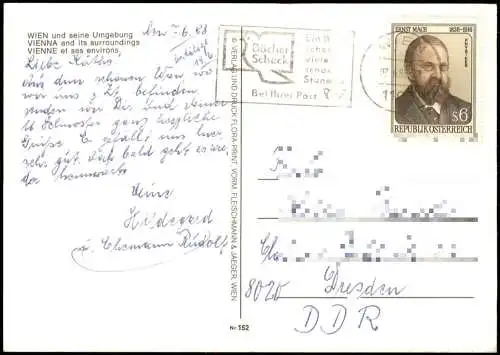 WIEN und seine Umgebung
VIENNA and its surroundings
VIENNE et ses environs.
den 7/6. 88
Liebe Käthe!
Aus dem schönen Wien wo
wir uns z. Zt. befinden
senden wir Dir und Deiner
lb Schwester ganz herzliche
Grüße. Es gefällt uns hier
sehr gut, doch bald geht es wie-
der heimwärts
Deine
Hildegard
u. Ehemann Rudolf
© VERLAG UND DRUCK FLORA-PRINT, VORM. FLEISCHMANN & JAEGER, WIEN
Nr. 152
Bücher
Scheck
Ein
viele
Bei Ihrer Post
ERNST MACH 1838-1916
S6
REPUBLIK ÖSTERREICH
8020 Dresden
DDR